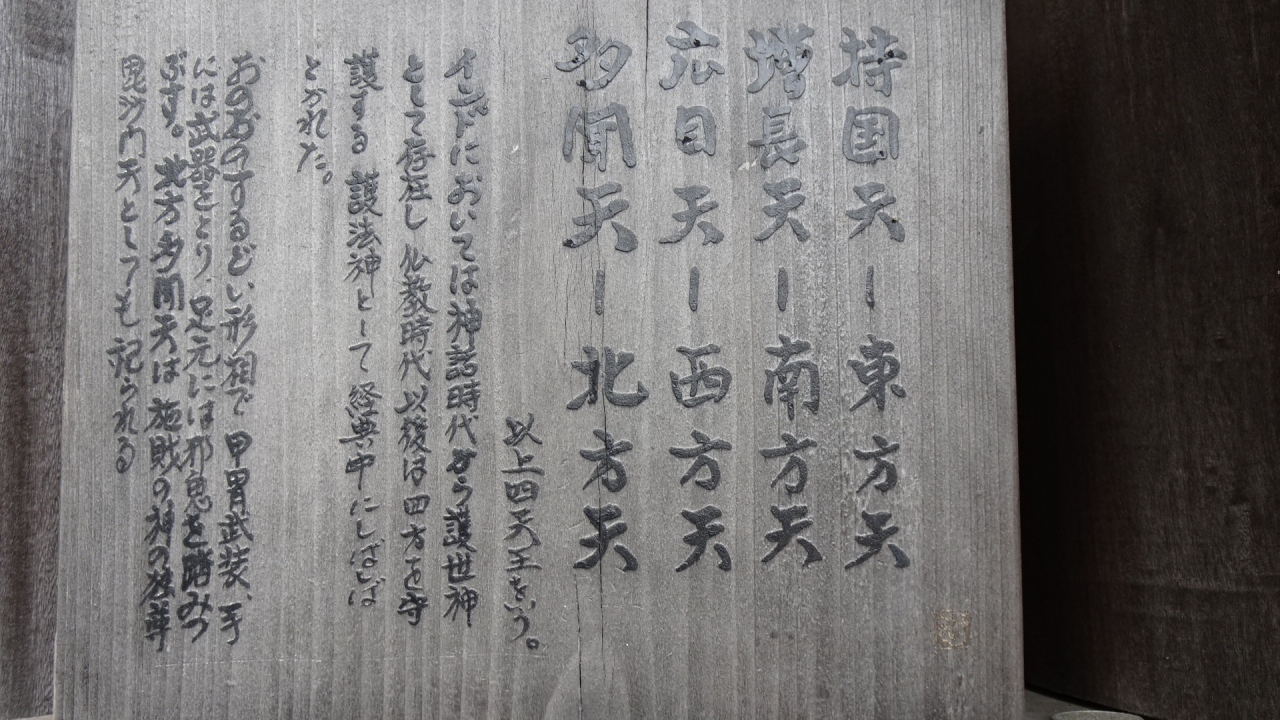 持国天ー東方天
增長天ー南方天
広目天ー西方天
多聞天ー北方天
以上四天王をいう。
インドにおいては神話時代から護世神
として存在し仏教時代以後は四方を守
護する護法神として経典中にしばしば
とかれた。
おのおのするどい形相で甲冑武装、手
には武器をとり、足元には邪鬼を踏みつ
ぶす。北方多聞天は施財の神の独尊
毘沙門天としても祀られる